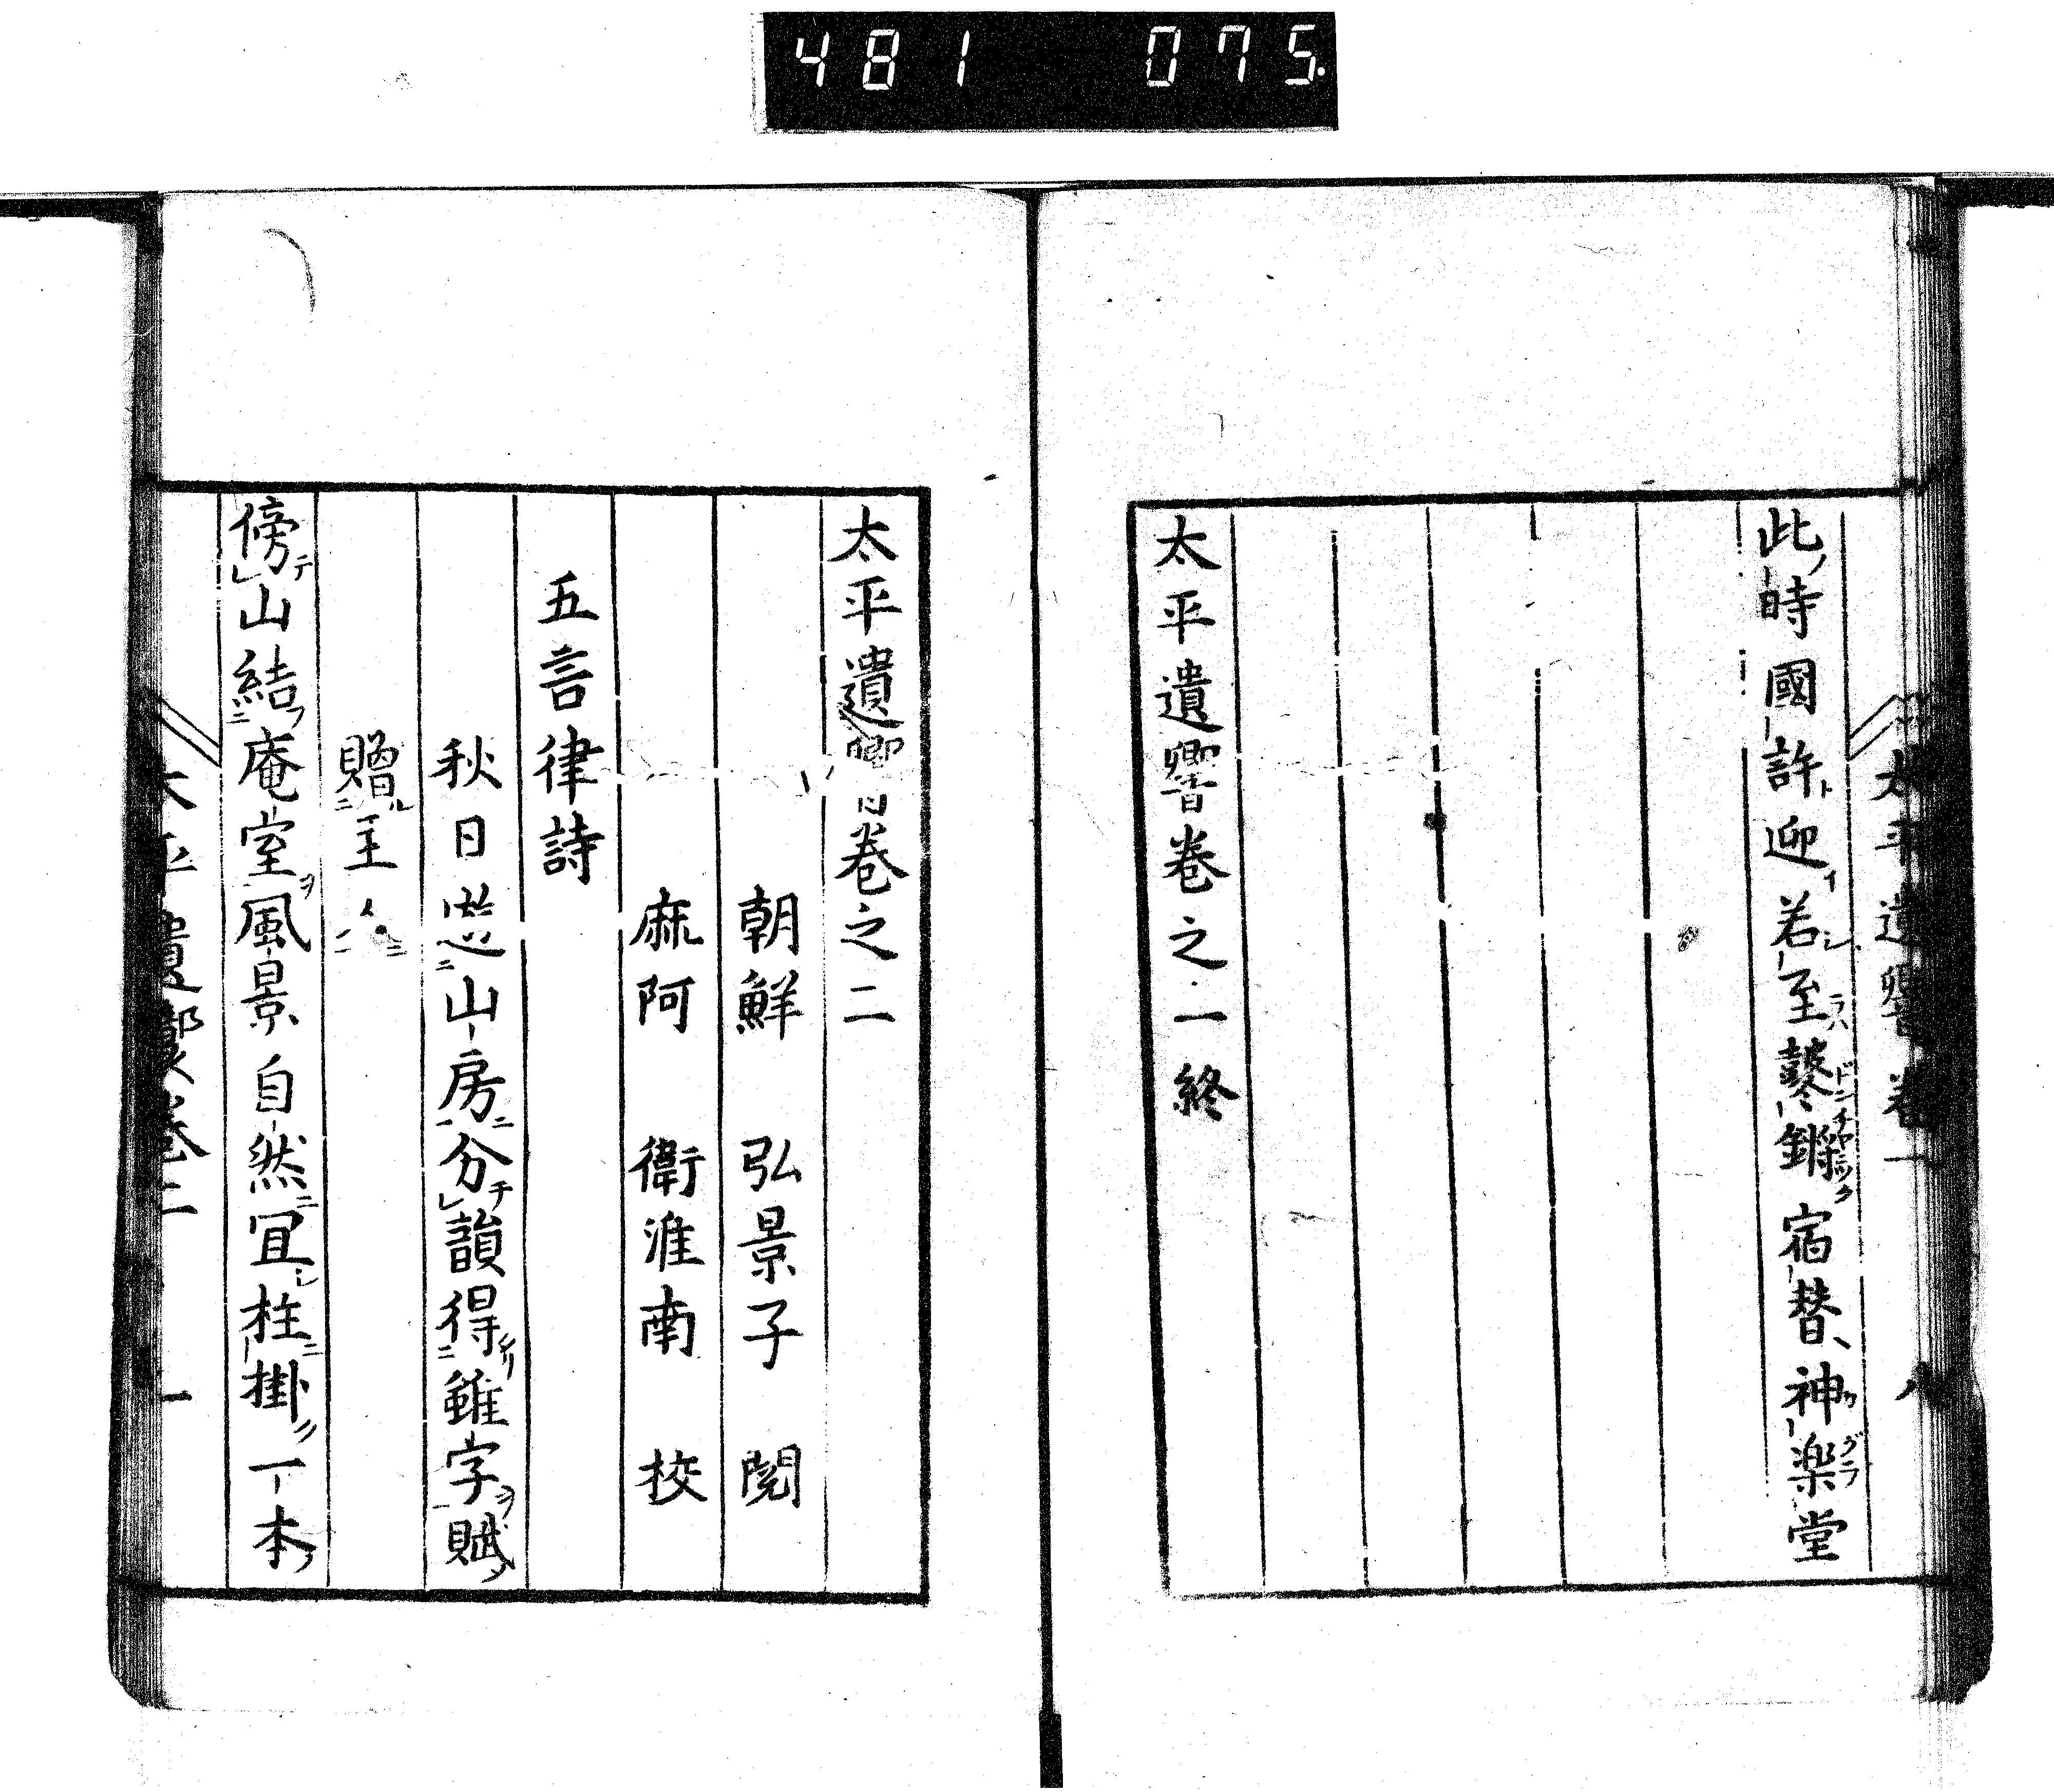 481 075.
太平遺響卷一 八
此時國許迎若至鼕鏘宿替神楽堂
太平遺響卷之一終
太平遺響卷之二
朝鮮 弘景子 閲
麻阿 衞淮南 校
五言律詩
秋日遊山房分韻得雖字賦
贈主人
傍山結庵室風景自然宜柱掛一本
太平遺響卷二 一